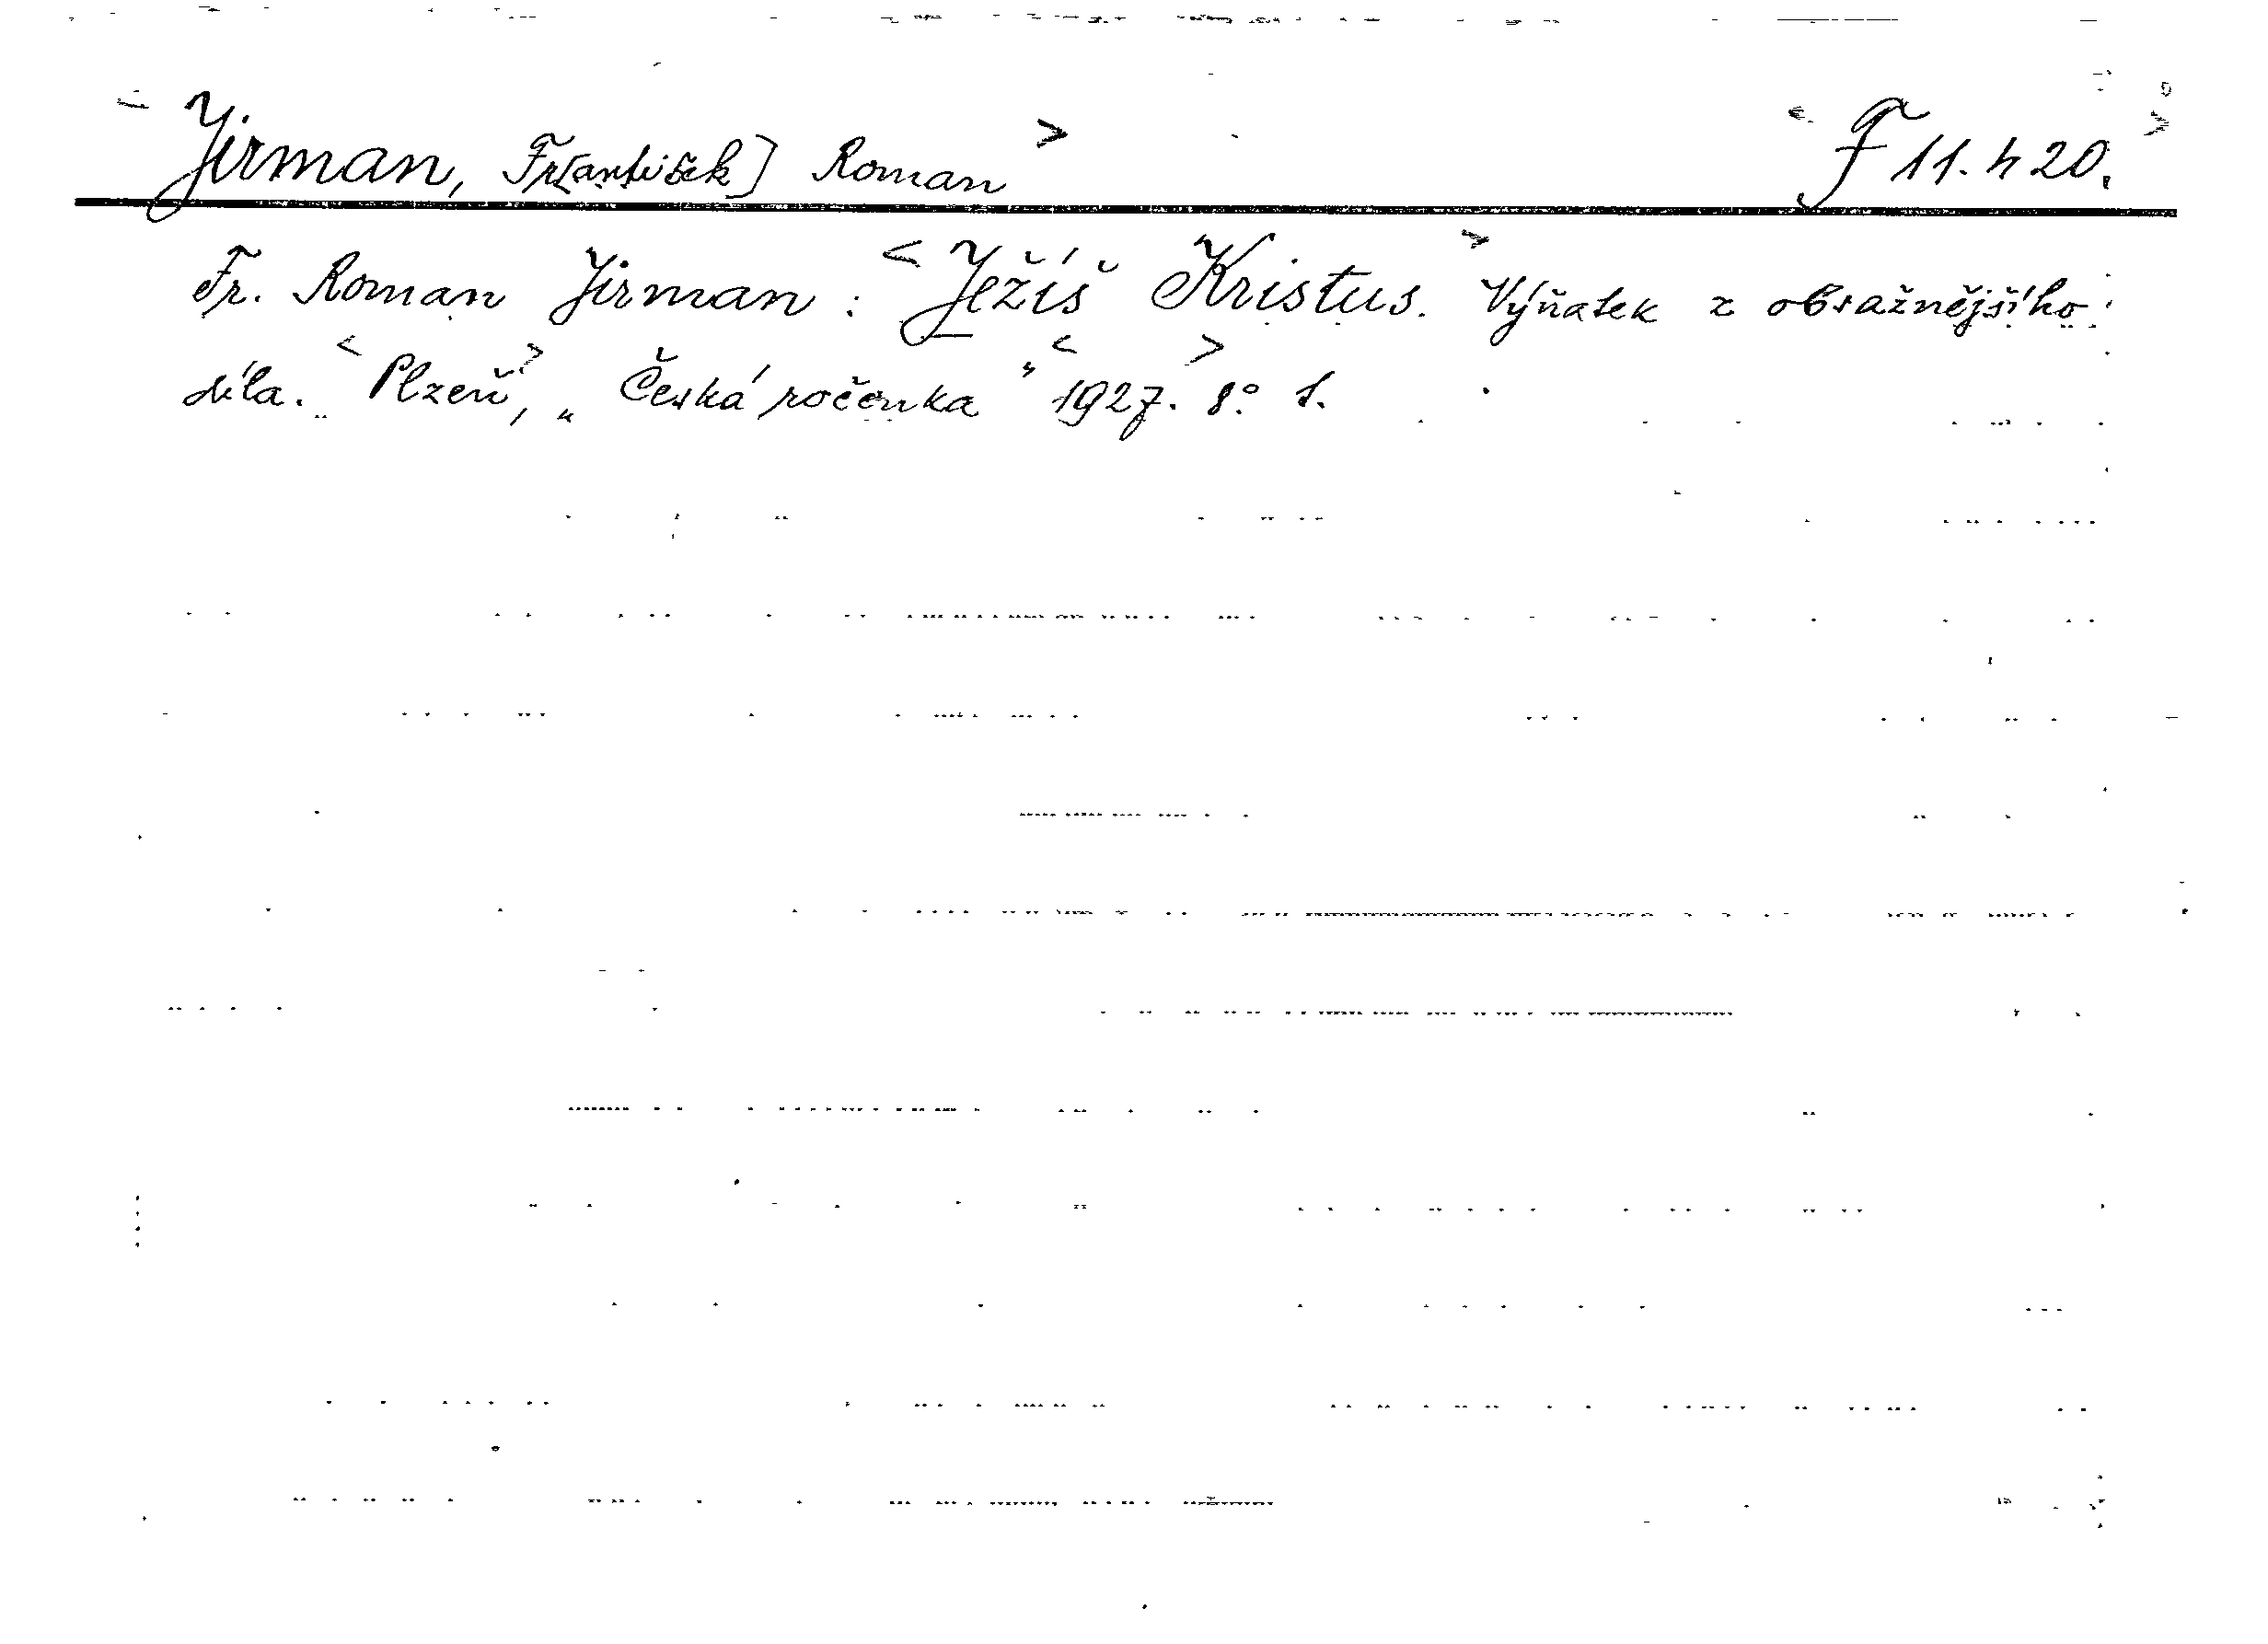 < Jirman, Fr[antišek] Roman > < F 11.420. >
Fr. Roman Jirman: < Ježíš Kristus. > Výňatek z obsažnějšího
díla. < Plzeň >, „Česká ročenka" < 1927. > 8° 1.